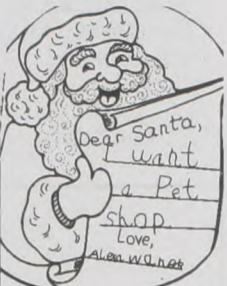 Dear Santa,
I want
a Pet
shop.
Love,
Alan